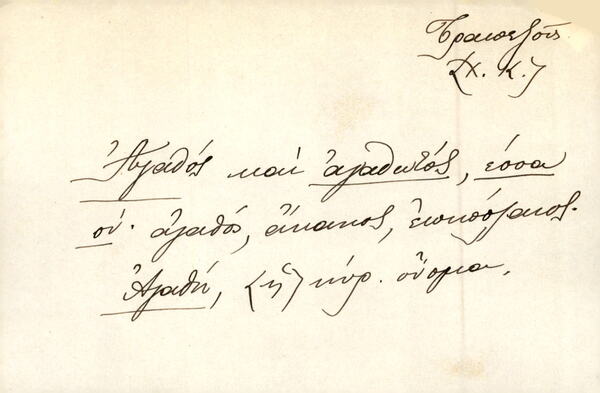 Τραπεζοῦς
Σχ. κ.)
Ἀγαθὸς καὶ ἀγαθωτός, έσσα
ον· ἀγαθός, ἄκακος, ἐπιπόλαιος.
Ἀγαθή, (ἡ) κύρ. ὄνομα.